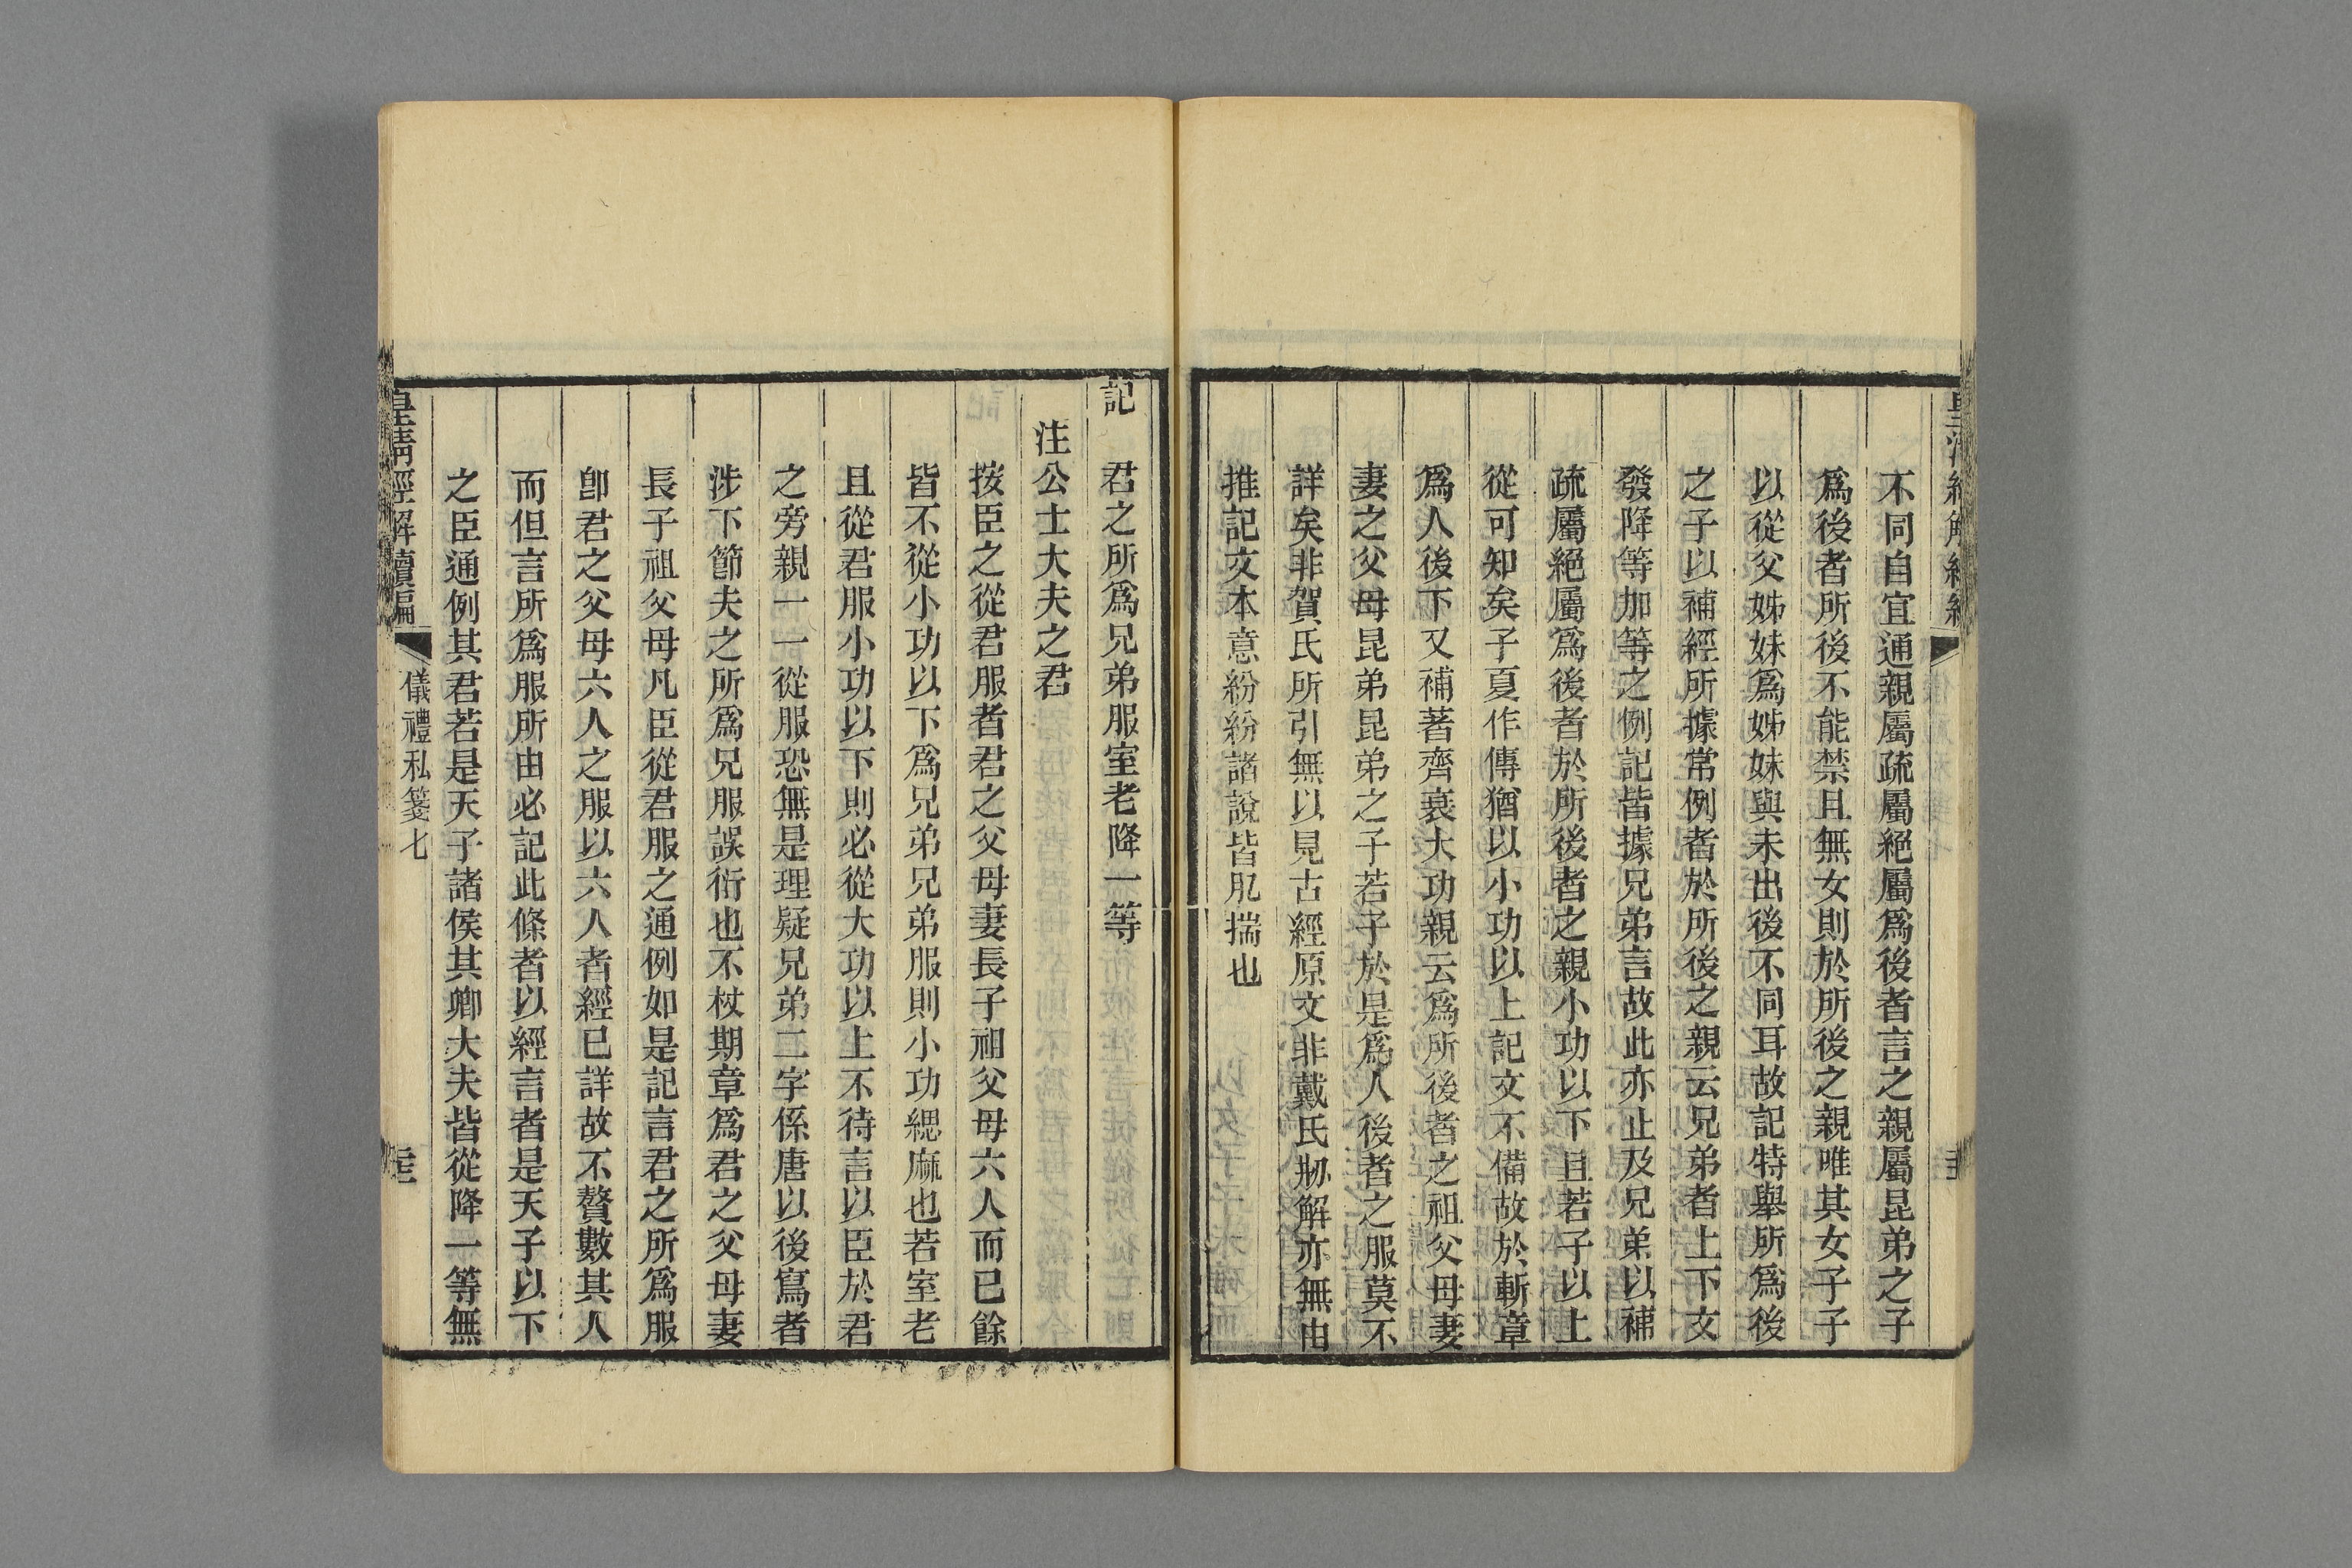 不同自宜通親屬疏屬絕屬爲後者言之親屬昆弟之子
爲後者所後不能禁且無女則於所後之親唯其女子子
以從父姊妹爲姊妹與未出後不同耳故記特舉所爲後
之子以補經所據常例者於所後之親云兄弟者上下文
發降等加等之例記皆據兄弟言故此亦止及兄弟以補
疏屬絕屬爲後者於所後者之親小功以下且若子以上
從可知矣子夏作傳猶以小功以上記文不備故於斬章
爲人後下又補著齊衰大功親云爲所後者之祖父母妻
妻之父母昆弟昆弟之子若子於是爲人後者之服莫不
詳矣非賀氏所引無以見古經原文非戴氏刱解亦無由
推記文本意紛紛諸說皆肊揣也
記　君之所爲兄弟服室老降一等
注公士大夫之君
按臣之從君服者君之父母妻長子祖父母六人而已餘
皆不從小功以下爲兄弟兄弟服則小功緦麻也若室老
且從君服小功以下則必從大功以上不待言以臣於君
之旁親一一從服恐無是理疑兄弟二字係唐以後寫者
涉下節夫之所爲兄服服誤衍也不杖期章爲君之父母妻
長子祖父母凡臣從君服之通例如是記言君之所爲服
卽君之父母六人之服以六人者經已詳故不贅數其人
而但言所爲服所由必記此條者以經言者是天子以下
之臣通例其君若是天子諸侯其卿大夫皆從降一等無
皇清經解續編
儀禮私箋七